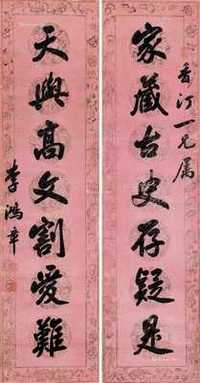 香汀一兄属
家藏古史存疑是
天与高文割爱难
李鸿章